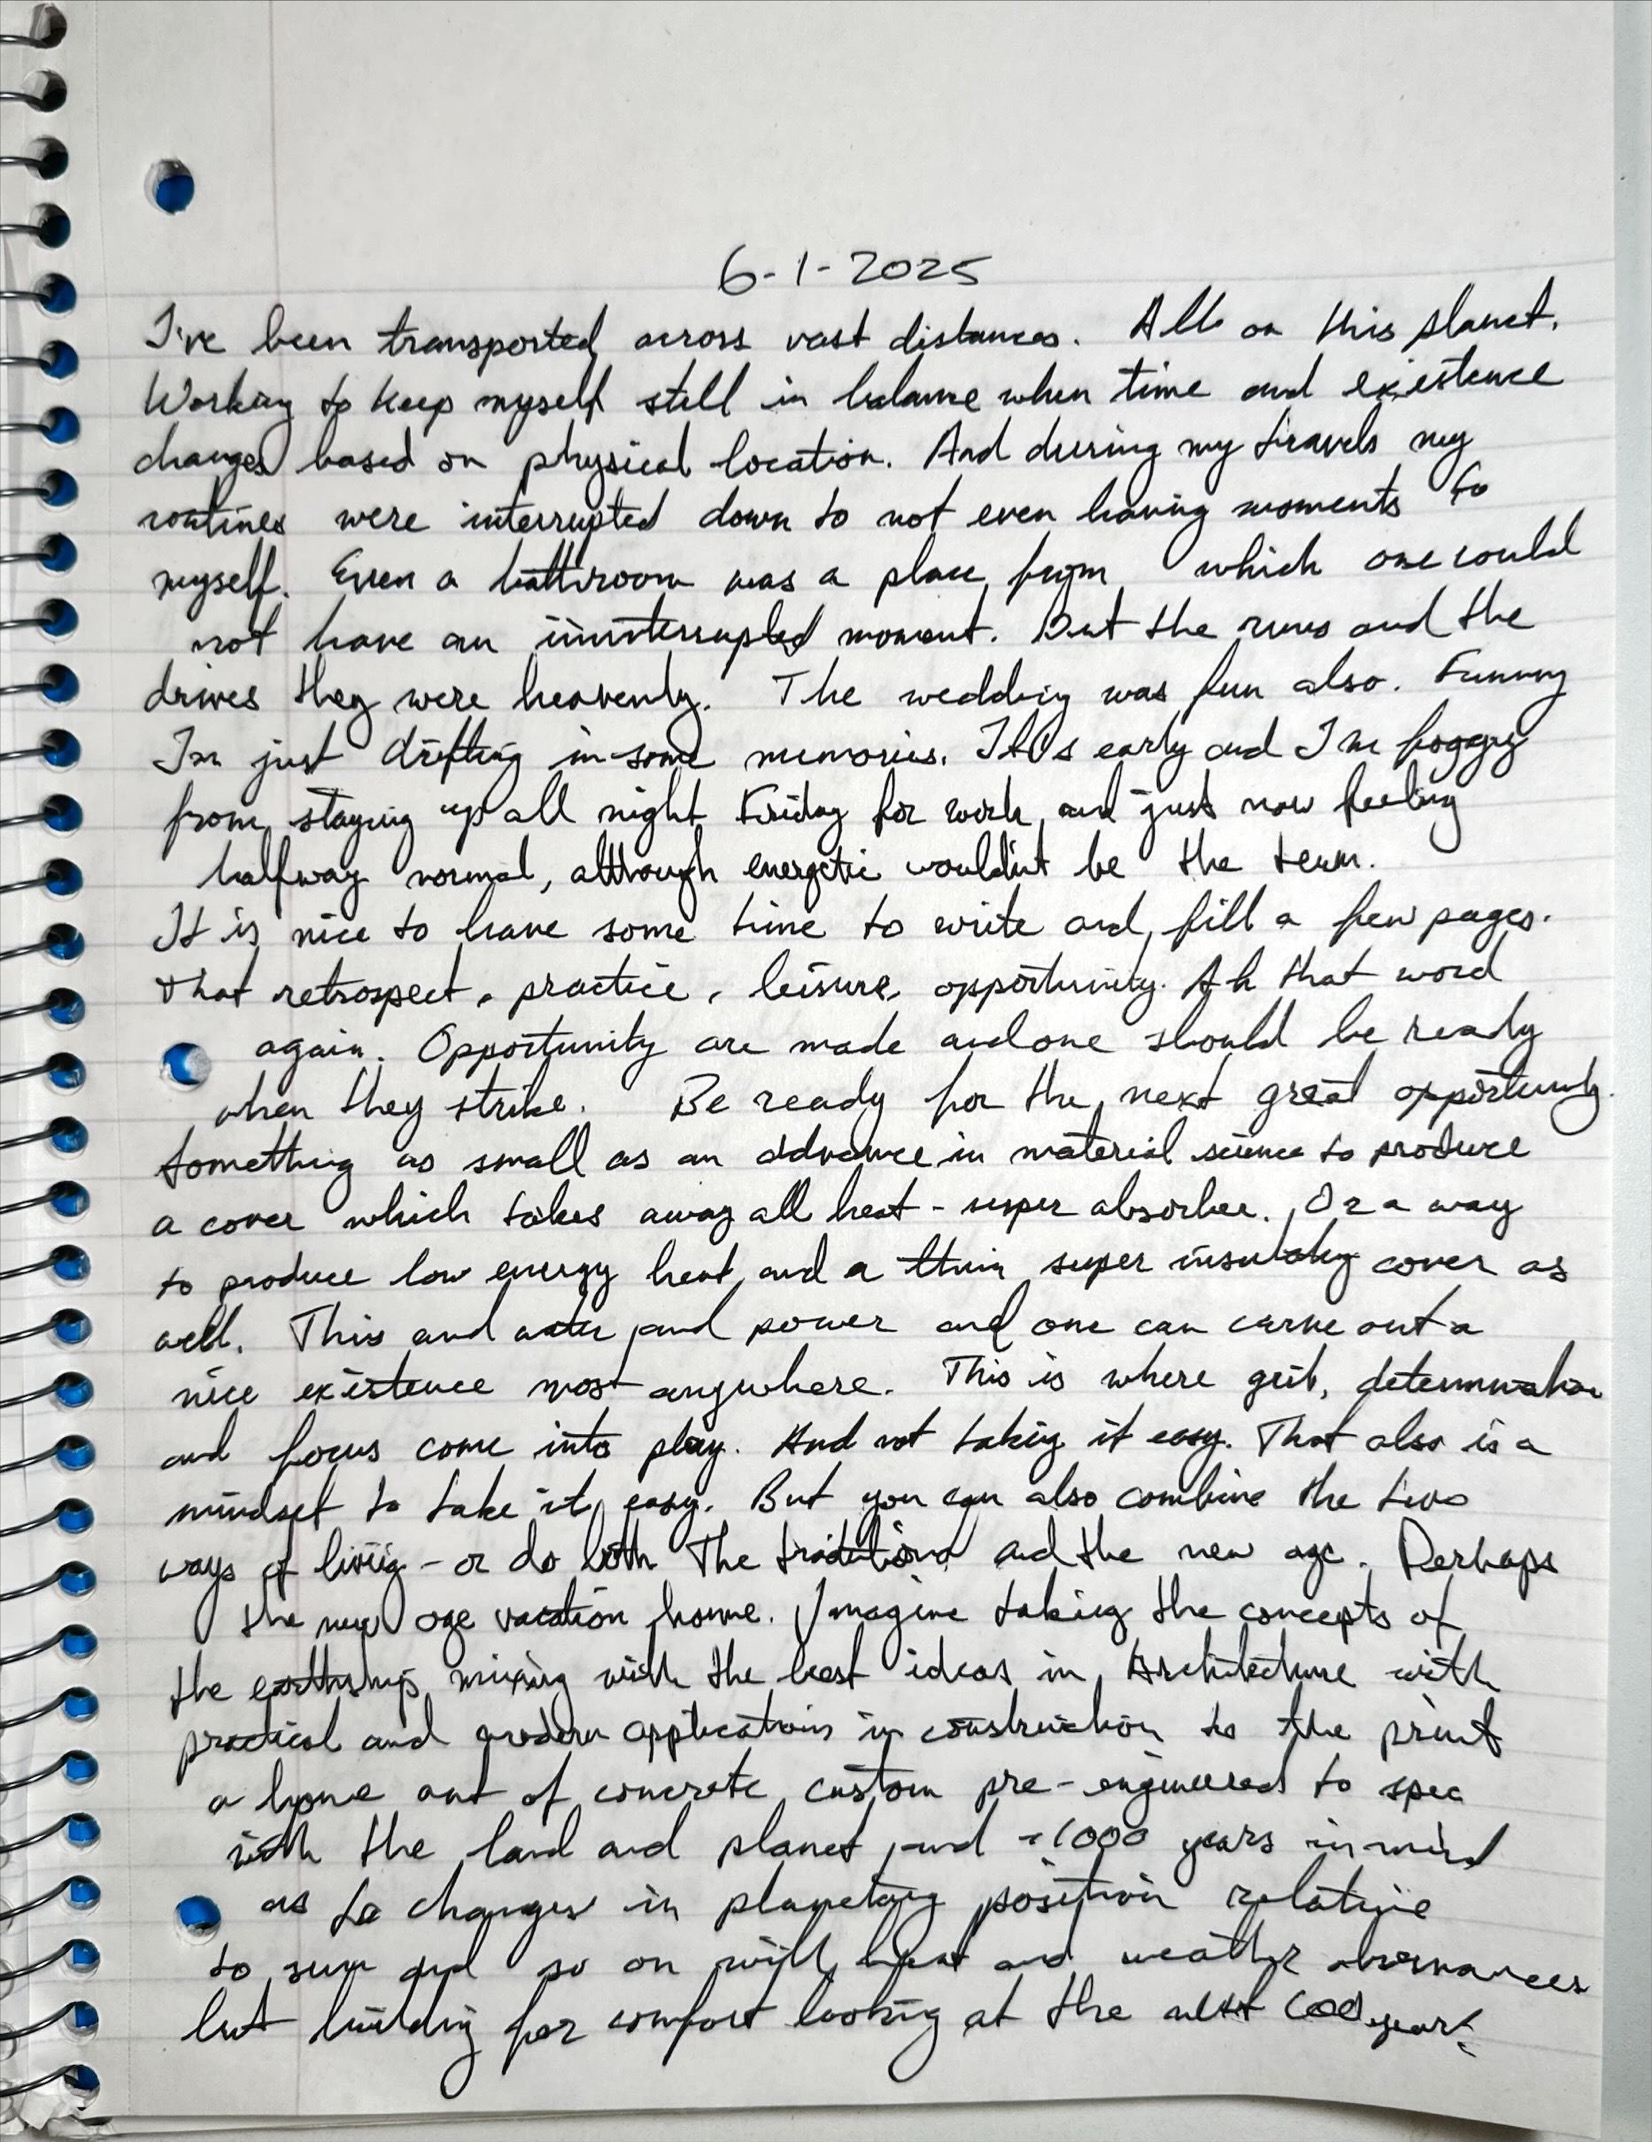 6-1-2025
I've been transported across vast distances. All on this planet.
Working to keep myself still in balance when time and existence
changes based on physical location. And during my travels my
routines were interrupted down to not even having moments to
myself. Even a bathroom was a place from which one could
not have an uninterrupted moment. But the runs and the
drives they were heavenly. The wedding was fun also. Funny
I'm just drifting in some memories. It's early and I'm foggy
from staying up all night Friday for work and just now feeling
halfway normal, although energetic wouldn't be the term.
It is nice to have some time to write and fill a few pages.
that retrospect, practice, leisure, opportunity. Ah that word
again. Opportunity are made and one should be ready
when they strike. Be ready for the next great opportunity.
Something as small as an advance in material science to produce
a cover which takes away all heat - super absorber. Or a way
to produce low energy heat and a thin super insulating cover as
well. This and water and power and one can carve out a
nice existence most anywhere. This is where grit, determination
and focus come into play. And not taking it easy. That also is a
mindset to take it easy. But you can also combine the two
ways of living - or do both The traditional and the new age. Perhaps
the new age vacation home. Imagine taking the concepts of
the earthship mixing with the best ideas in Architecture with
practical and modern applications in construction to the print
a home out of concrete custom pre-engineered to spec
with the land and planet and 1000 years in mind
as to changes in planetary position relative
to sun and so on with heat and weather
but building for comfort looking at the next years.